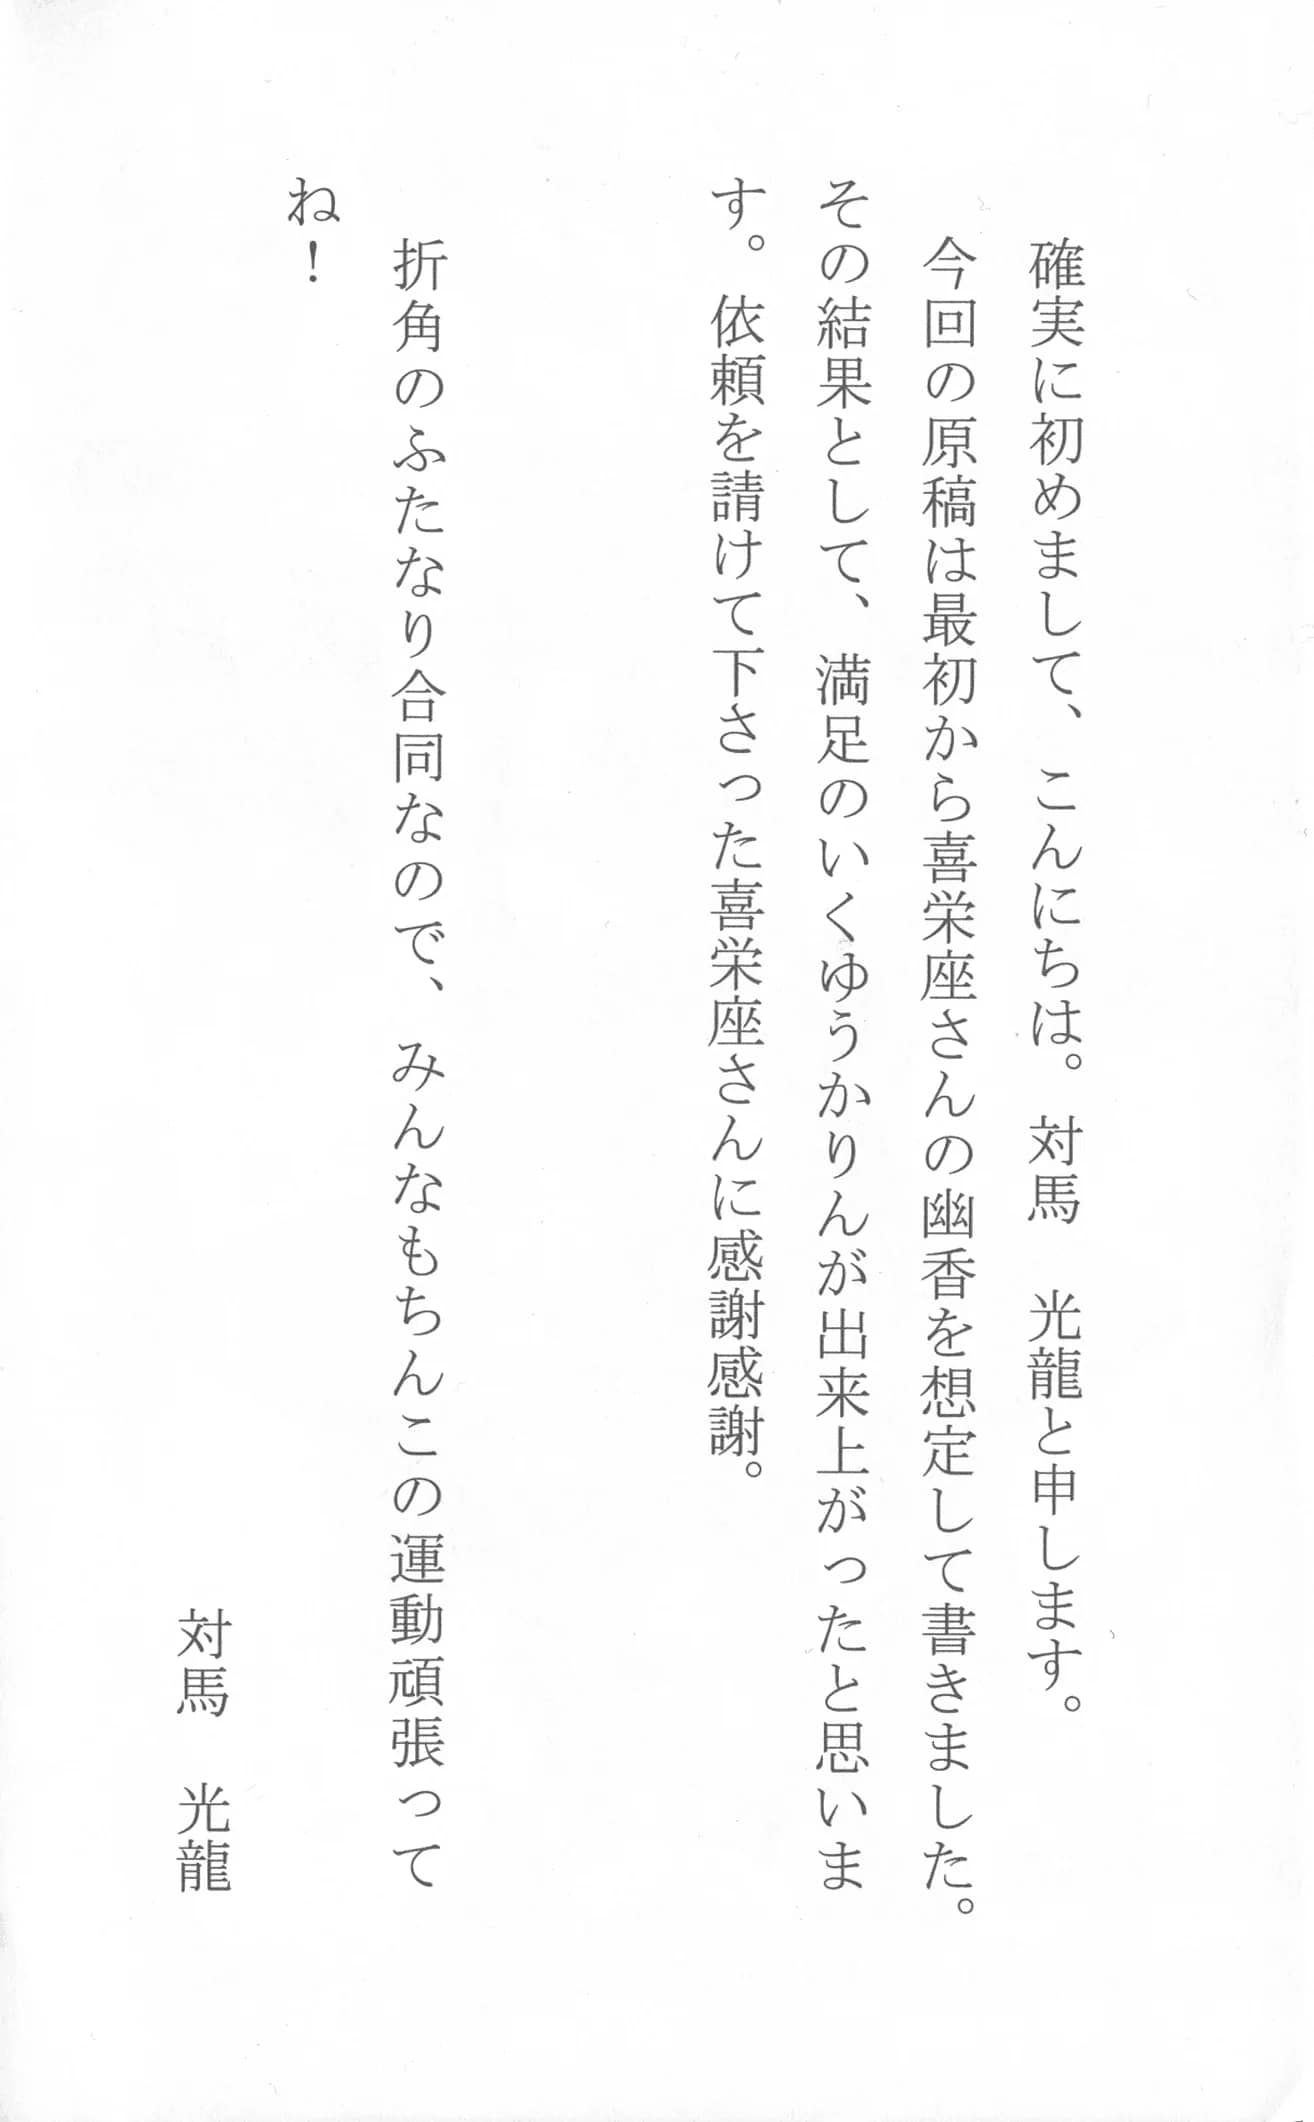 確実に初めまして、こんにちは。対馬　光龍と申します。
　今回の原稿は最初から喜栄座さんの幽香を想定して書きました。
その結果として、満足のいくゆうかりんが出来上がったと思いま
す。依頼を請けて下さった喜栄座さんに感謝感謝。
　折角のふたなり合同なので、みんなもちんこの運動頑張って
ね！
対馬　光龍